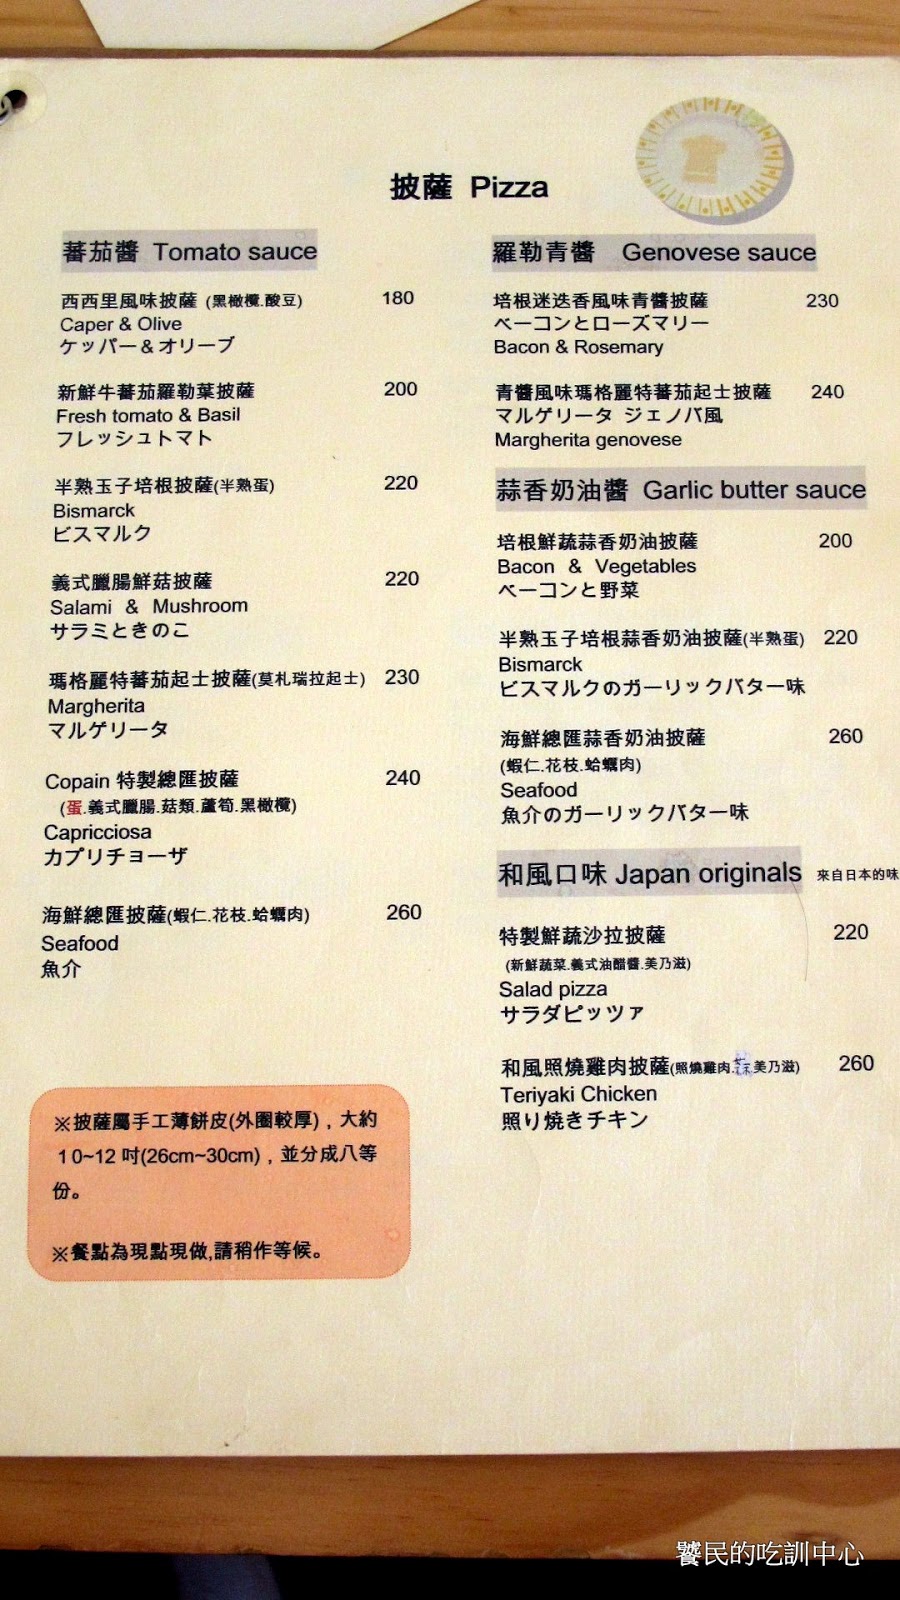 披薩 Pizza
蕃茄醬 Tomato sauce
西西里風味披薩 (黑橄欖.酸豆) 180
Caper & Olive
ケッパー＆オリーブ
新鮮牛蕃茄羅勒葉披薩 200
Fresh tomato & Basil
フレッシュトマト
半熟玉子培根披薩(半熟蛋) 220
Bismarck
ビスマルク
義式臘腸鮮菇披薩 220
Salami & Mushroom
サラミときのこ
瑪格麗特蕃茄起士披薩(莫札瑞拉起士) 230
Margherita
マルゲリータ
Copain 特製總匯披薩 240
(蛋.義式臘腸.菇類.蘆筍.黑橄欖)
Capricciosa
カプリチョーザ
海鮮總匯披薩(蝦仁.花枝.蛤蠣肉) 260
Seafood
魚介
※披薩屬手工薄餅皮(外圈較厚)，大約
10~12 吋(26cm~30cm)，並分成八等
份。
※餐點為現點現做,請稍作等候。
羅勒青醬 Genovese sauce
培根迷迭香風味青醬披薩 230
ベーコンとローズマリー
Bacon & Rosemary
青醬風味瑪格麗特蕃茄起士披薩 240
マルゲリータ ジェノバ風
Margherita genovese
蒜香奶油醬 Garlic butter sauce
培根鮮蔬蒜香奶油披薩 200
Bacon & Vegetables
ベーコンと野菜
半熟玉子培根蒜香奶油披薩(半熟蛋) 220
Bismarck
ビスマルクのガーリックバター味
海鮮總匯蒜香奶油披薩 260
(蝦仁.花枝.蛤蠣肉)
Seafood
魚介のガーリックバター味
和風口味 Japan originals 來自日本的味
特製鮮蔬沙拉披薩 220
(新鮮蔬菜.義式油醋醬.美乃滋)
Salad pizza
サラダピッツァ
和風照燒雞肉披薩(照燒雞肉.美乃滋) 260
Teriyaki Chicken
照り焼きチキン
饕民的吃訓中心